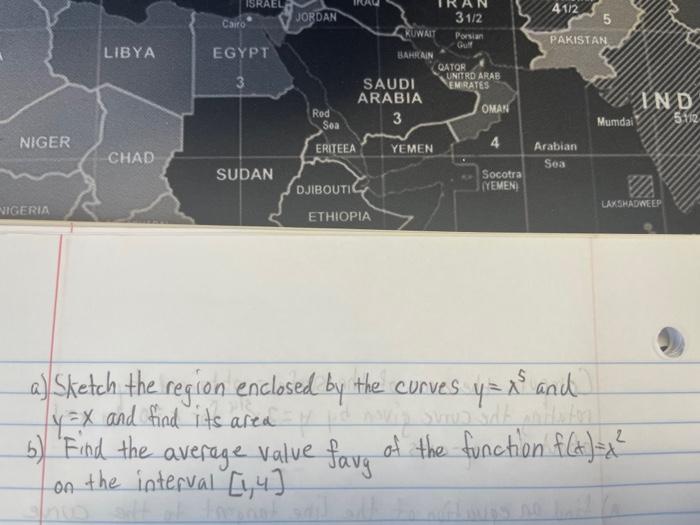 ISRAEL
IRAN
Cairo
JORDAN
3 1/2
4 1/2
5
KUWAIT
Porsian
Gulf
PAKISTAN
LIBYA
EGYPT
BAHRAIN
QATQR
3
SAUDI
ARABIA
UNITRD ARAB
EMIRATES
3
OMAN
IND
5 1/2
Mumdai
Rod
Soa
NIGER
CHAD
ERITEEA
YEMEN
4
Arabian
Soa
SUDAN
Socotra
(YEMEN)
DJIBOUTI
LAKSHADWEEP
NIGERIA
ETHIOPIA
a) Sketch the region enclosed by the curves y = x⁵ and
y = x and find its area
b) Find the average value f_avg of the function f(x) = x²
on the interval [1,4]